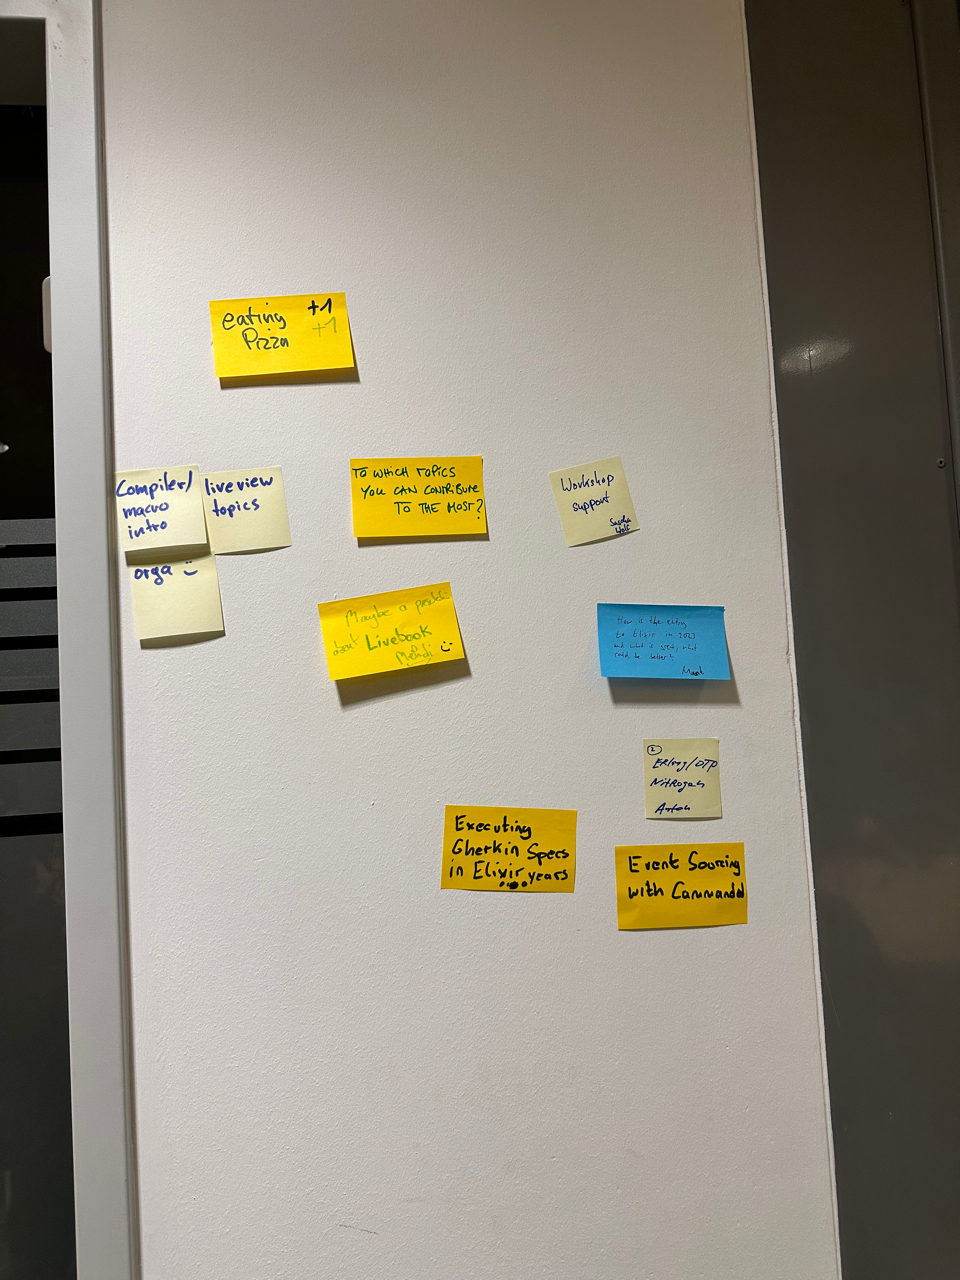 eating +1
Pizza +1
Compiler/
macro
intro
liveview
topics
orga :)
TO WHICH TOPICS
YOU CAN CONTRIBUTE
TO THE MOST?
Workshop
support
Sascha
Wolf
Maybe a
about Livebook
Mehdi :)
How is the entry
to Elixir in 2023
and what is great, what
could be better?
2
Erlang/OTP
Nitrogen
Executing
Gherkin Specs
in Elixir years
Event Sourcing
with Commanded